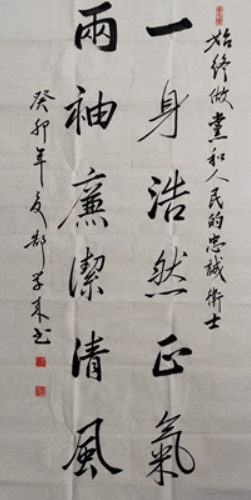 始终做黨和人民的忠誠衛士
一身浩然正氣
兩袖廉潔清風
癸卯年夏鄒学来书